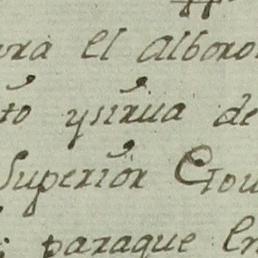 ra el alboro
to y sirua de
Superior Gou
paraque en